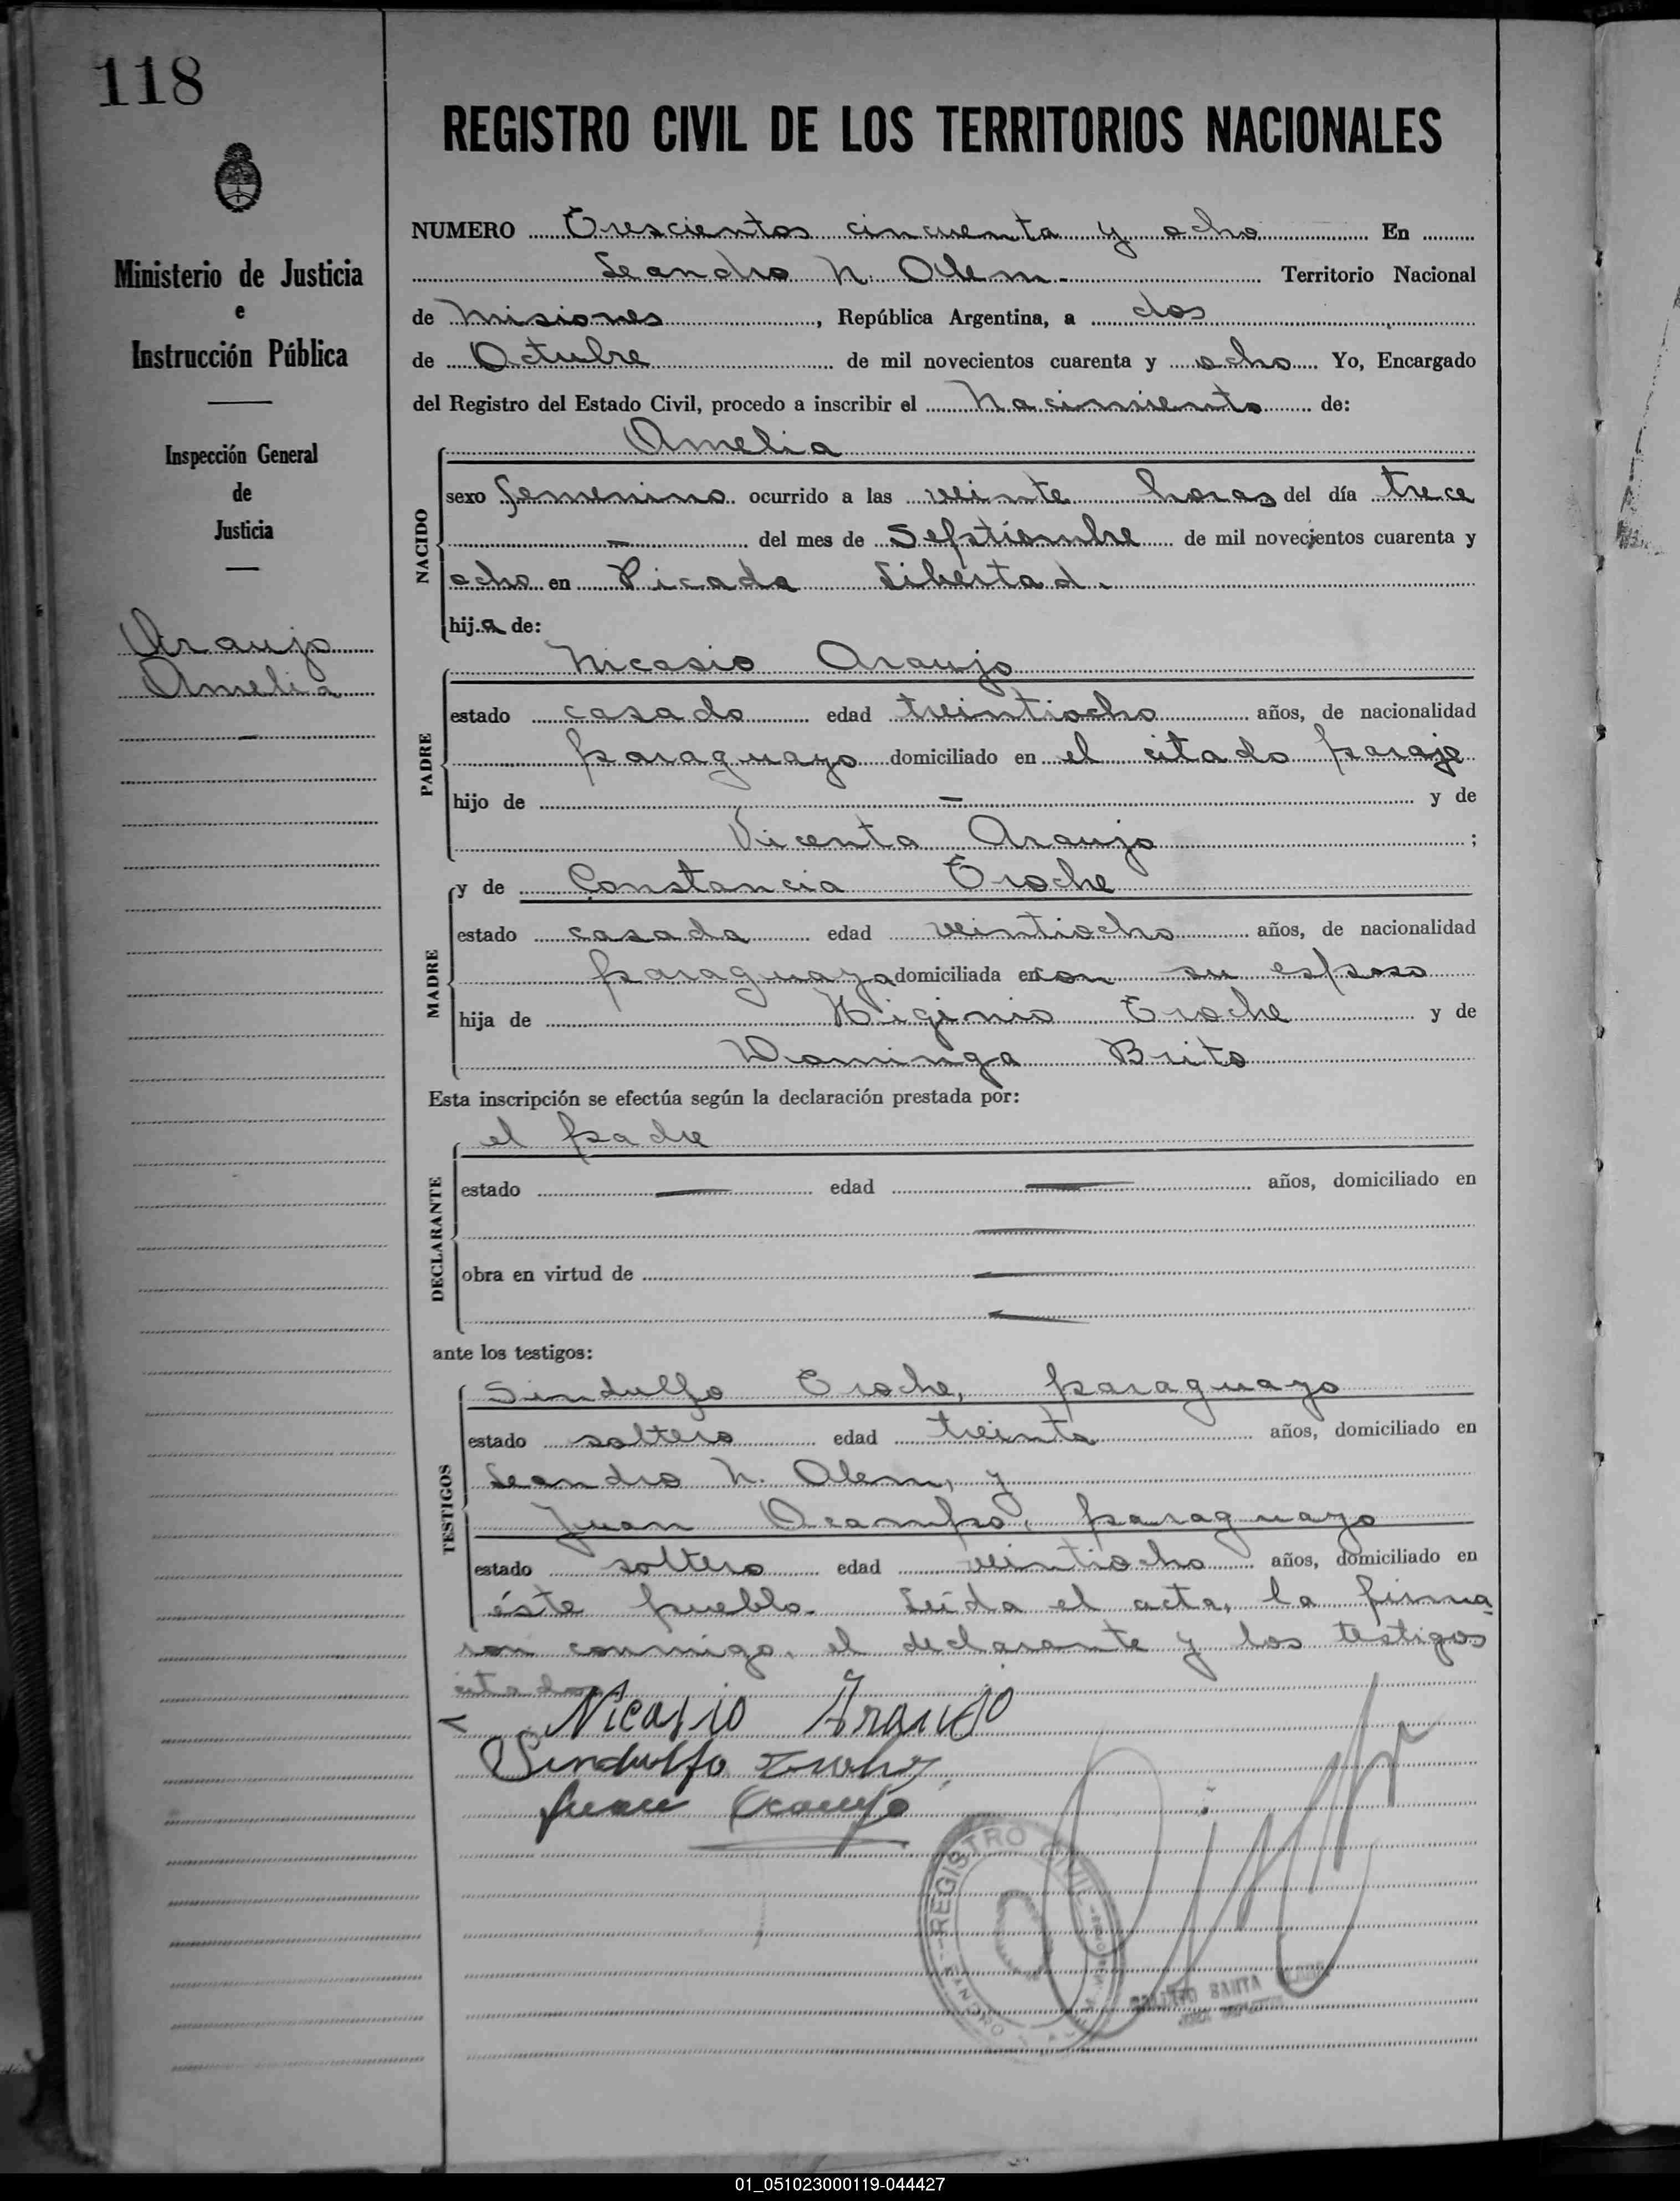 118
REGISTRO CIVIL DE LOS TERRITORIOS NACIONALES
Ministerio de Justicia
e
Instrucción Pública
Inspección General
de
Justicia
Araujo
Amelia
NUMERO Trescientos cincuenta y ocho En
Leandro N. Alem.- Territorio Nacional
de Misiones, República Argentina, a dos
de Octubre de mil novecientos cuarenta y ocho Yo, Encargado
del Registro del Estado Civil, procedo a inscribir el Nacimiento de:
NACIDO
Amelia
sexo femenino ocurrido a las veinte horas del día trece
— del mes de Septiembre de mil novecientos cuarenta y
ocho en Picada Libertad.
hija de:
PADRE
Nicasio Araujo
estado casado edad treintiocho años, de nacionalidad
paraguayo domiciliado en el citado paraje
hijo de — y de
Vicenta Araujo ;
MADRE
y de Constancia Troche
estado casada edad veintiocho años, de nacionalidad
paraguaya domiciliada en con su esposo
hija de Higinio Troche y de
Dominga Brito
Esta inscripción se efectúa según la declaración prestada por:
DECLARANTE
el padre
estado — edad — años, domiciliado en
—
obra en virtud de —
—
ante los testigos:
TESTIGOS
Sindulfo Troche, paraguayo
estado soltero edad treinta años, domiciliado en
Leandro N. Alem, y
Juan Ocampo, paraguayo
estado soltero edad veintiocho años, domiciliado en
éste pueblo. Leída el acta, la firma
ron conmigo, el declarante y los testigos
citados
Nicasio Araujo
Sindulfo Troche
Juan Ocampo
REGISTRO CIVIL
SANTA
01_051023000119-044427